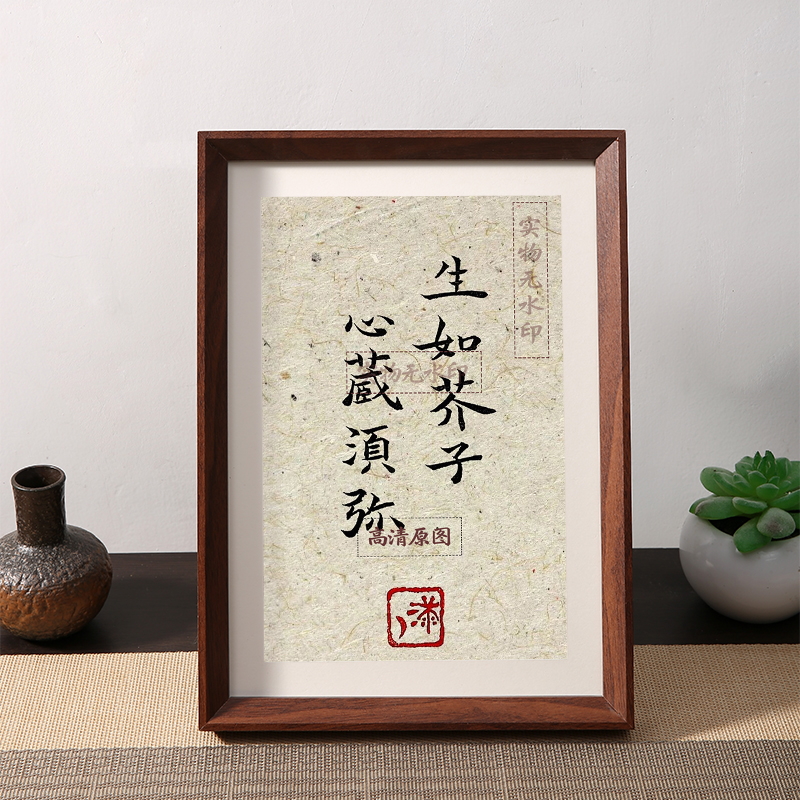 生如芥子
心蔵須弥
实物无水印
实物无水印
高清原图